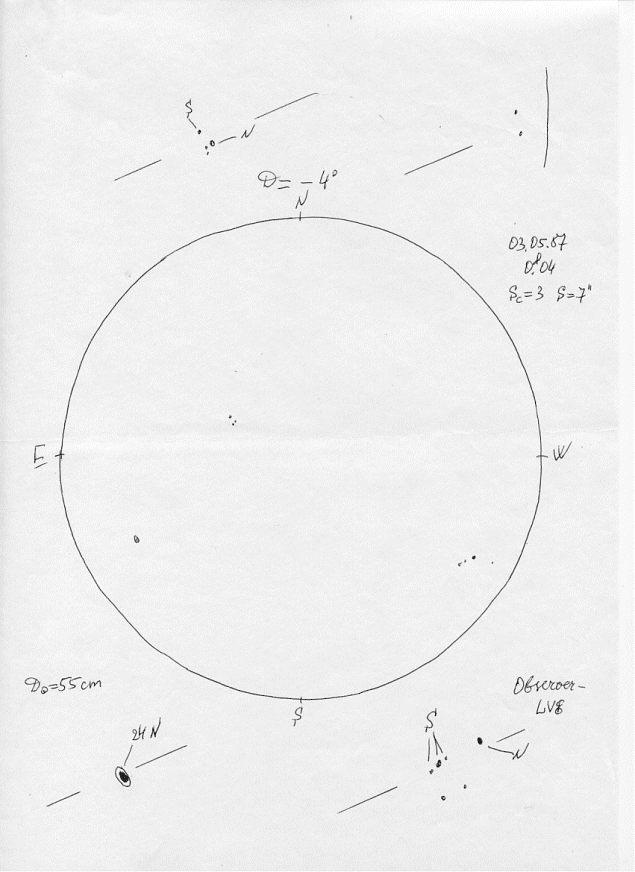 S
N
D = -4°
N
03.05.87
S_c=3 S=7"
E
W
D⊙=55cm
S
Observer-
LVB
24 N
S
N